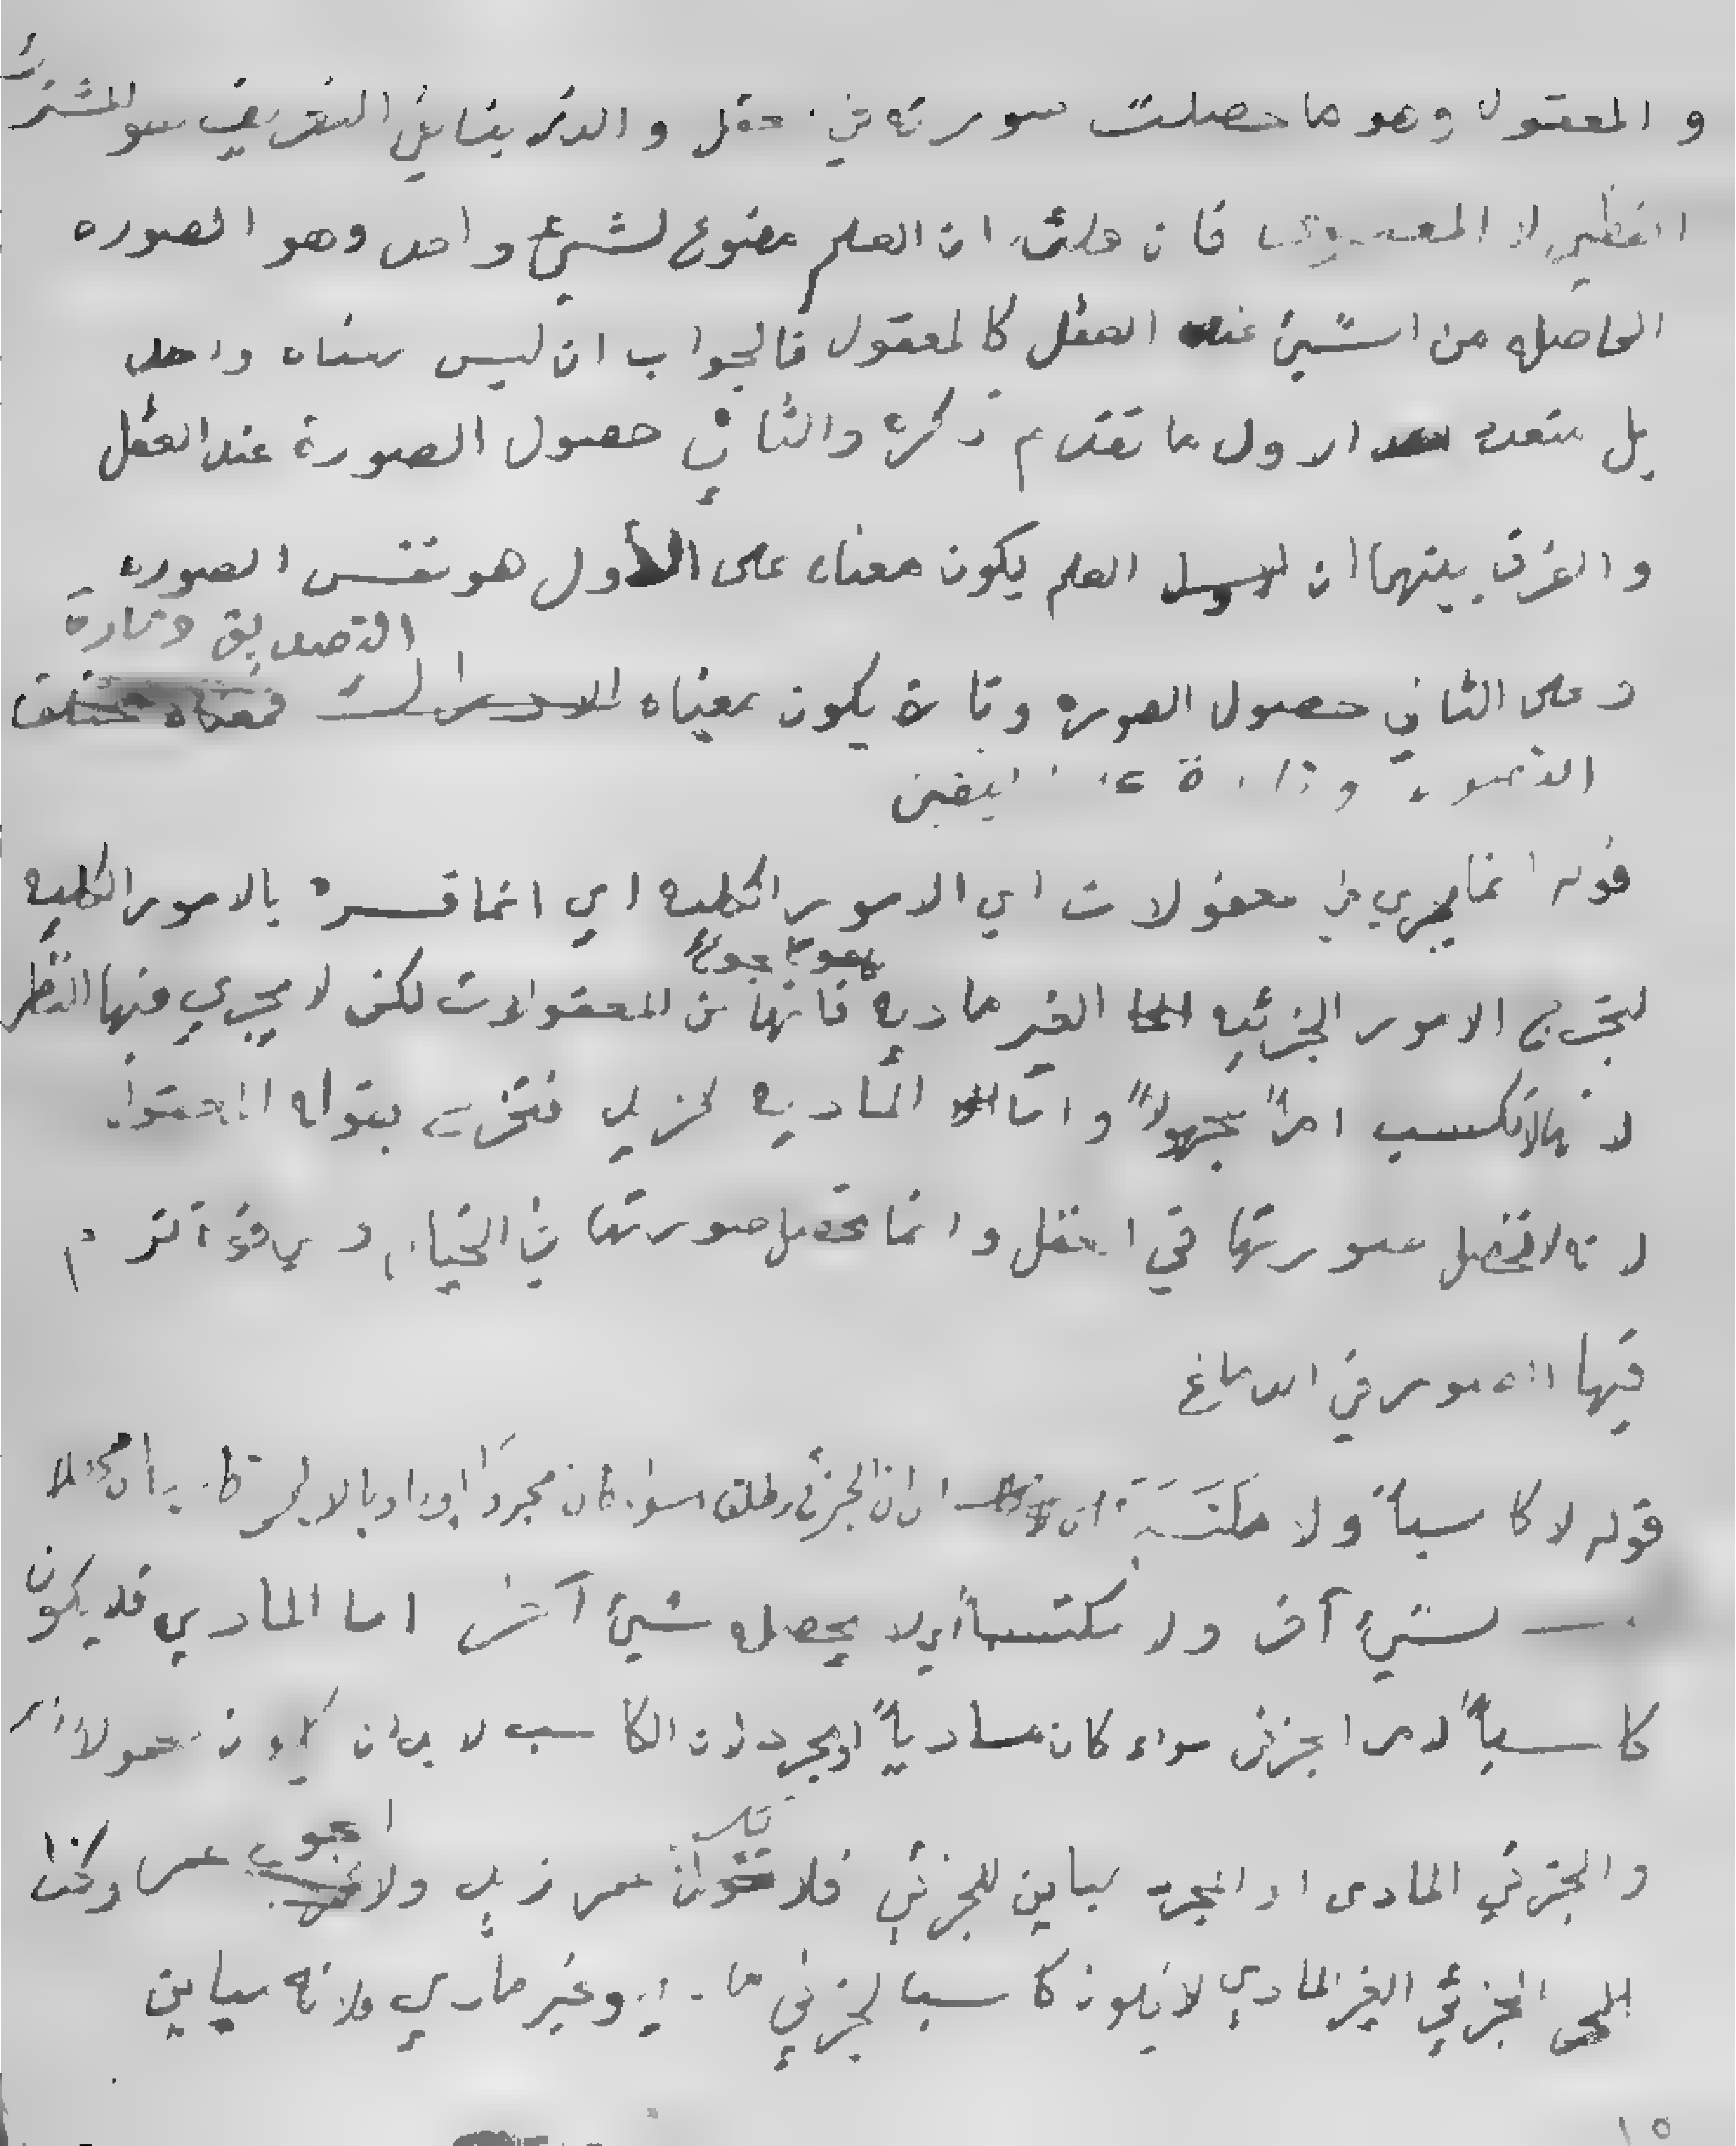 و المعقول وهو ما حصلت صورته في عقل والذي ينافي التعريف هو المشترك
اللفظي لا المعنوي فان قلت ان العلم موضوع لشيئ واحد وهو الصوره
الحاصله من الشيئ عند العقل كالمعقول فالجواب ان ليس معناه واحد
بل متعدد الاول ما تقدم ذكره والثاني حصول الصورة عند العقل
والفرق بينهما ان العلم يكون معناه على الأول هو نفس الصوره
وعلى الثاني حصول الصوره وتارة يكون بمعناه التصديق وتارة
التصور وتارة اليقين
قوله انما يجري في معقولات اي الامور الكليه اي انما فسره بالامور الكليه
ليخرج الامور الجزئيه الغير ماديه فانها من المعقولات لكن لا يجري فيها النظر
لانها لا تكسب امراً مجهولاً واما الماديه كزيد فتخرج بقوله المعقول
لانه لا تحصل صورتها في العقل وانما تحصل صورتها في الخيال وهي قوة ترتسم
فيها الصور في الدماغ
قوله لا كاسباً ولا مكتسبا لان الجزئي مطلقا سواء كان مجردا او ماديا لا
لشيئ آخر ولا مكتسباً اي لا يحصله شيئ آخر اما المادي فلا يكون
كاسباً لامر جزئي سواء كان ماديا او مجرد لان الكاسب لا بد ان يكون محمولا
والجزئي المادي او المجرد مباين للجزئي فلا عمر زيد ولا عمر وكذا
الجزئي الغير المادي لا يكون كاسبا لجزئي وغير مادي لانه مباين
١٥